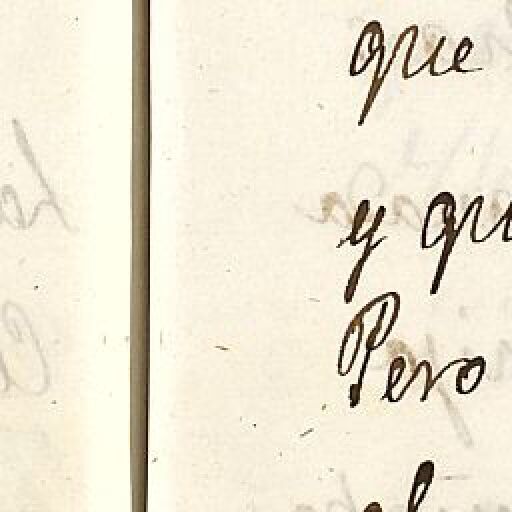 que
y qu
Pero